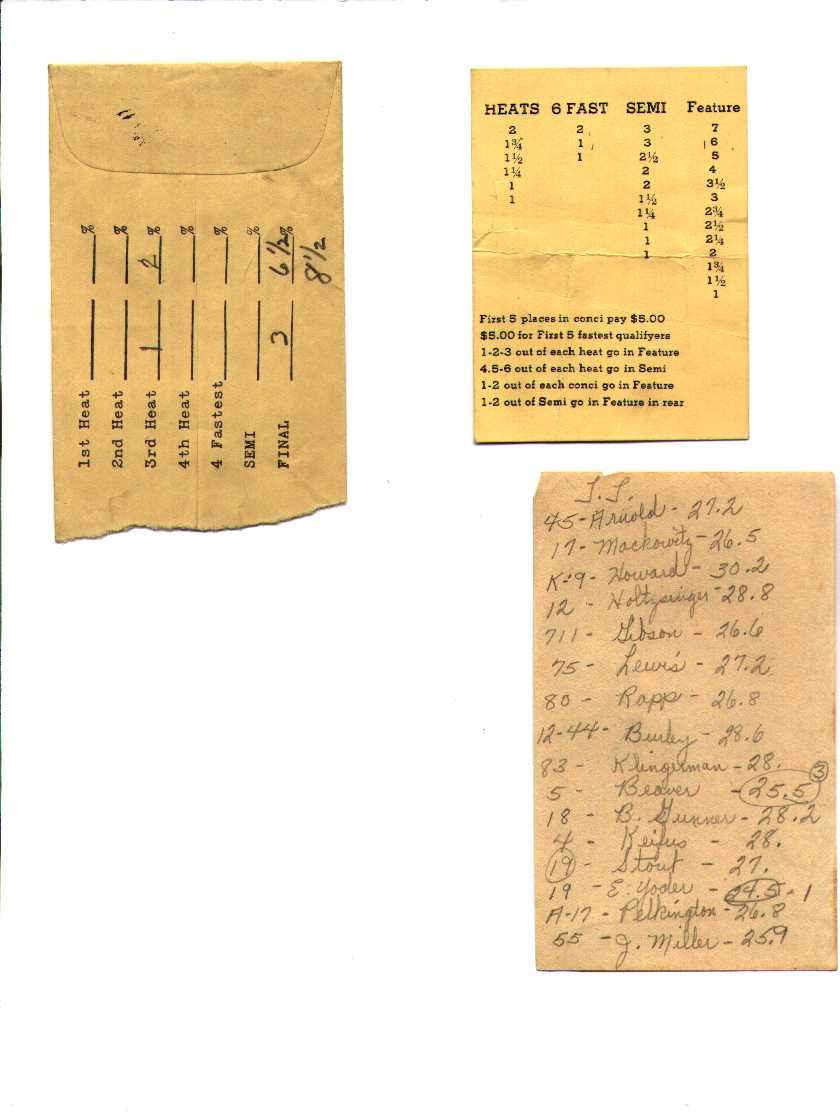 1st Heat ____ ____%
2nd Heat ____ ____%
3rd Heat 1 2 %
4th Heat ____ ____%
4 Fastest ____ ____%
SEMI ____ ____%
FINAL 3 6 1/2 %
8 1/2
HEATS 6 FAST SEMI Feature
2 2 3 7
1¾ 1 3 6
1½ 1 2½ 5
1¼ 2 4
1 2 3½
1 1½ 3
1¼ 2¾
1 2½
1 2¼
1 2
1¾
1½
1
First 5 places in conci pay $5.00
$5.00 for First 5 fastest qualifyers
1-2-3 out of each heat go in Feature
4.5-6 out of each heat go in Semi
1-2 out of each conci go in Feature
1-2 out of Semi go in Feature in rear
T.T.
45-Arnold - 27.2
17- Mackowitz - 26.5
K-9- Howard - 30.2
12 - Holtzsinger - 28.8
711 - Gibson - 26.6
75 - Lewis - 27.2
80 - Rapp - 26.8
12-44- Burley - 28.6
83 - Klingerman - 28.
5 - Beaver - 25.5 3
18 - B. Gunner - 28.2
4 - Keifus - 28.
19 - Stout - 27.
19 - E. Yoder - 24.5 - 1
A-17 - Pelkington - 26.8
55 - J. Miller - 25.9